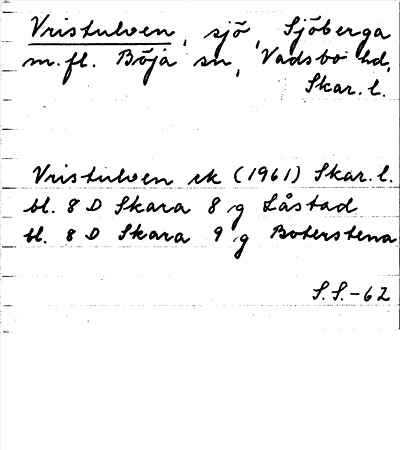 Vristulven, sjö, Sjöberga
m.fl. Böja sn, Vadsbo hd,
Skar. l.
Vristulven ek (1961) Skar. l.
bl. 8 D Skara 8 g Låstad
bl. 8 D Skara 9 g Boterstena
S.S.-62